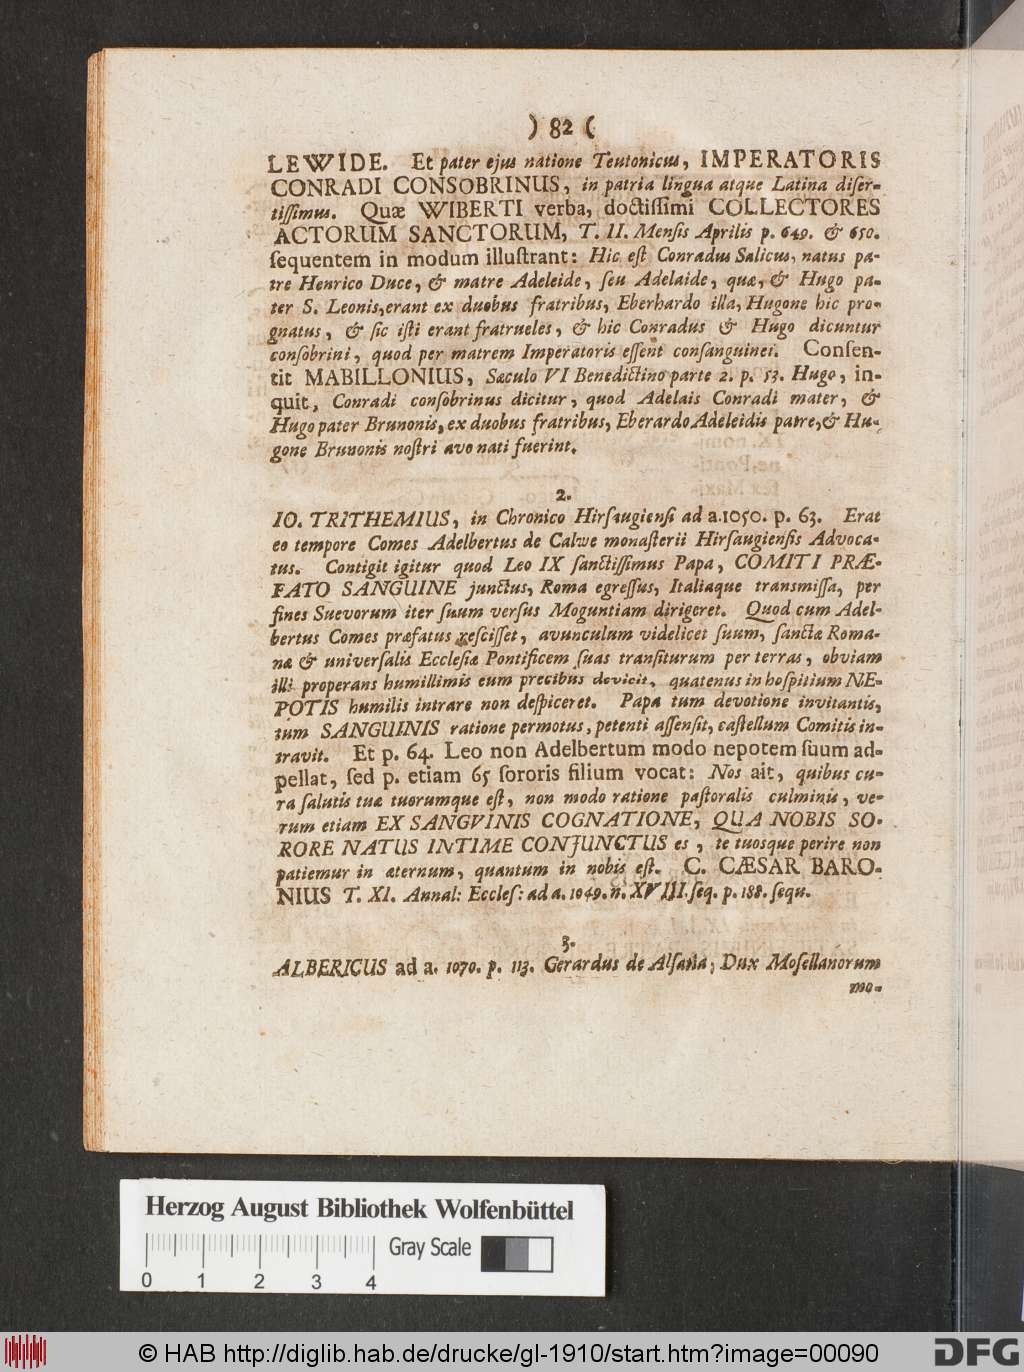 ) 82 (
LEWIDE. Et pater ejus natione Teutonicus, IMPERATORIS
CONRADI CONSOBRINUS, in patria lingua atque Latina diſer-
tiſſimus. Quæ WIBERTI verba, doctiſſimi COLLECTORES
ACTORUM SANCTORUM, T. II. Menſis Aprilis p. 649. & 650.
ſequentem in modum illuſtrant: Hic eſt Conradus Salicus, natus pa-
tre Henrico Duce, & matre Adeleide, ſeu Adelaide, quæ, & Hugo pa-
ter S. Leonis, erant ex duobus fratribus, Eberhardo illa, Hugone hic pro-
gnatus, & ſic iſti erant fratrueles, & hic Conradus & Hugo dicuntur
conſobrini, quod per matrem Imperatoris eſſent conſanguinei. Conſen-
tit MABILLONIUS, Sæculo VI Benedictino parte 2. p. 53. Hugo, in-
quit, Conradi conſobrinus dicitur, quod Adelais Conradi mater, &
Hugo pater Brunonis, ex duobus fratribus, Eberardo Adeleidis patre, & Hu-
gone Brunonis noſtri avo nati fuerint.
2.
IO. TRITHEMIUS, in Chronico Hirſaugienſi ad a. 1050. p. 63. Erat
eo tempore Comes Adelbertus de Calwe monaſterii Hirſaugienſis Advoca-
tus. Contigit igitur quod Leo IX ſanctiſſimus Papa, COMITI PRÆ-
FATO SANGUINE junctus, Roma egreſſus, Italiaque transmiſſa, per
fines Suevorum iter ſuum verſus Moguntiam dirigeret. Quod cum Adel-
bertus Comes præfatus reſciſſet, avunculum videlicet ſuum, ſanctæ Roma-
næ & univerſalis Eccleſiæ Pontificem ſuas tranſiturum per terras, obviam
illi properans humillimis eum precibus devicit, quatenus in hoſpitium NE-
POTIS humilis intrare non deſpiceret. Papa tum devotione invitantis,
tum SANGUINIS ratione permotus, petenti aſſenſit, caſtellum Comitis in-
travit. Et p. 64. Leo non Adelbertum modo nepotem ſuum ad-
pellat, ſed p. etiam 65 ſororis filium vocat: Nos ait, quibus cu-
ra ſalutis tuæ tuorumque eſt, non modo ratione paſtoralis culminis, ve-
rum etiam EX SANGVINIS COGNATIONE, QUA NOBIS SO-
RORE NATUS INTIME CONJUNCTUS es, te tuosque perire non
patiemur in æternum, quantum in nobis eſt. C. CÆSAR BARO-
NIUS T. XI. Annal: Eccleſ: ad a. 1049. n. XVIII. ſeq. p. 188. ſequ.
3.
ALBERICUS ad a. 1070. p. 113. Gerardus de Alſatia, Dux Moſellanorum
mo-
Herzog August Bibliothek Wolfenbüttel
Gray Scale
0 1 2 3 4
© HAB http://diglib.hab.de/drucke/gl-1910/start.htm?image=00090
DFG